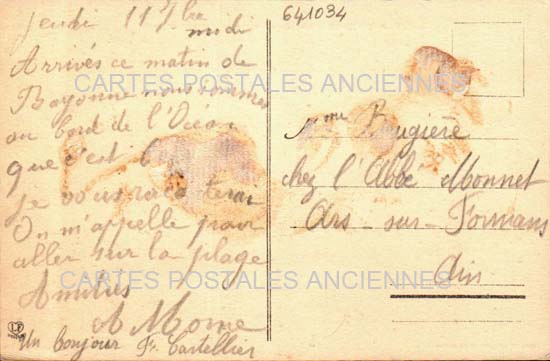 641034
Jeudi 11 7bre
midi
Arrivés ce matin de
Bayonne nous sommes
au bord de l'Océan
que c'est
je vous
On m'appelle pour
aller sur la plage
Amitiés
A Mome
Un bonjour Fr. Castellier
Mme Brugière
chez l'Abbé Monnet
Ars-sur-Formans
Ain
CARTES POSTALES ANCIENNES
CARTES POSTALES ANCIENNES